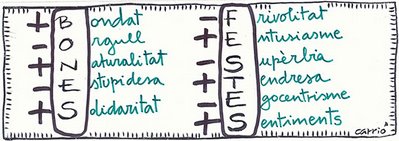 + Bondat
- Orgull
+ Naturalitat
- Estupidesa
+ Solidaritat
- Frivolitat
+ Entusiasme
- Supèrbia
+ Tendresa
- Egocentrisme
+ Sentiments
carrió